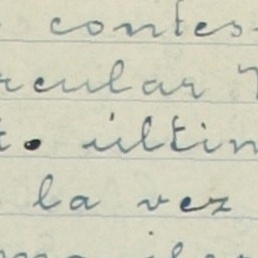 contes
rcular
t. últim
la vez